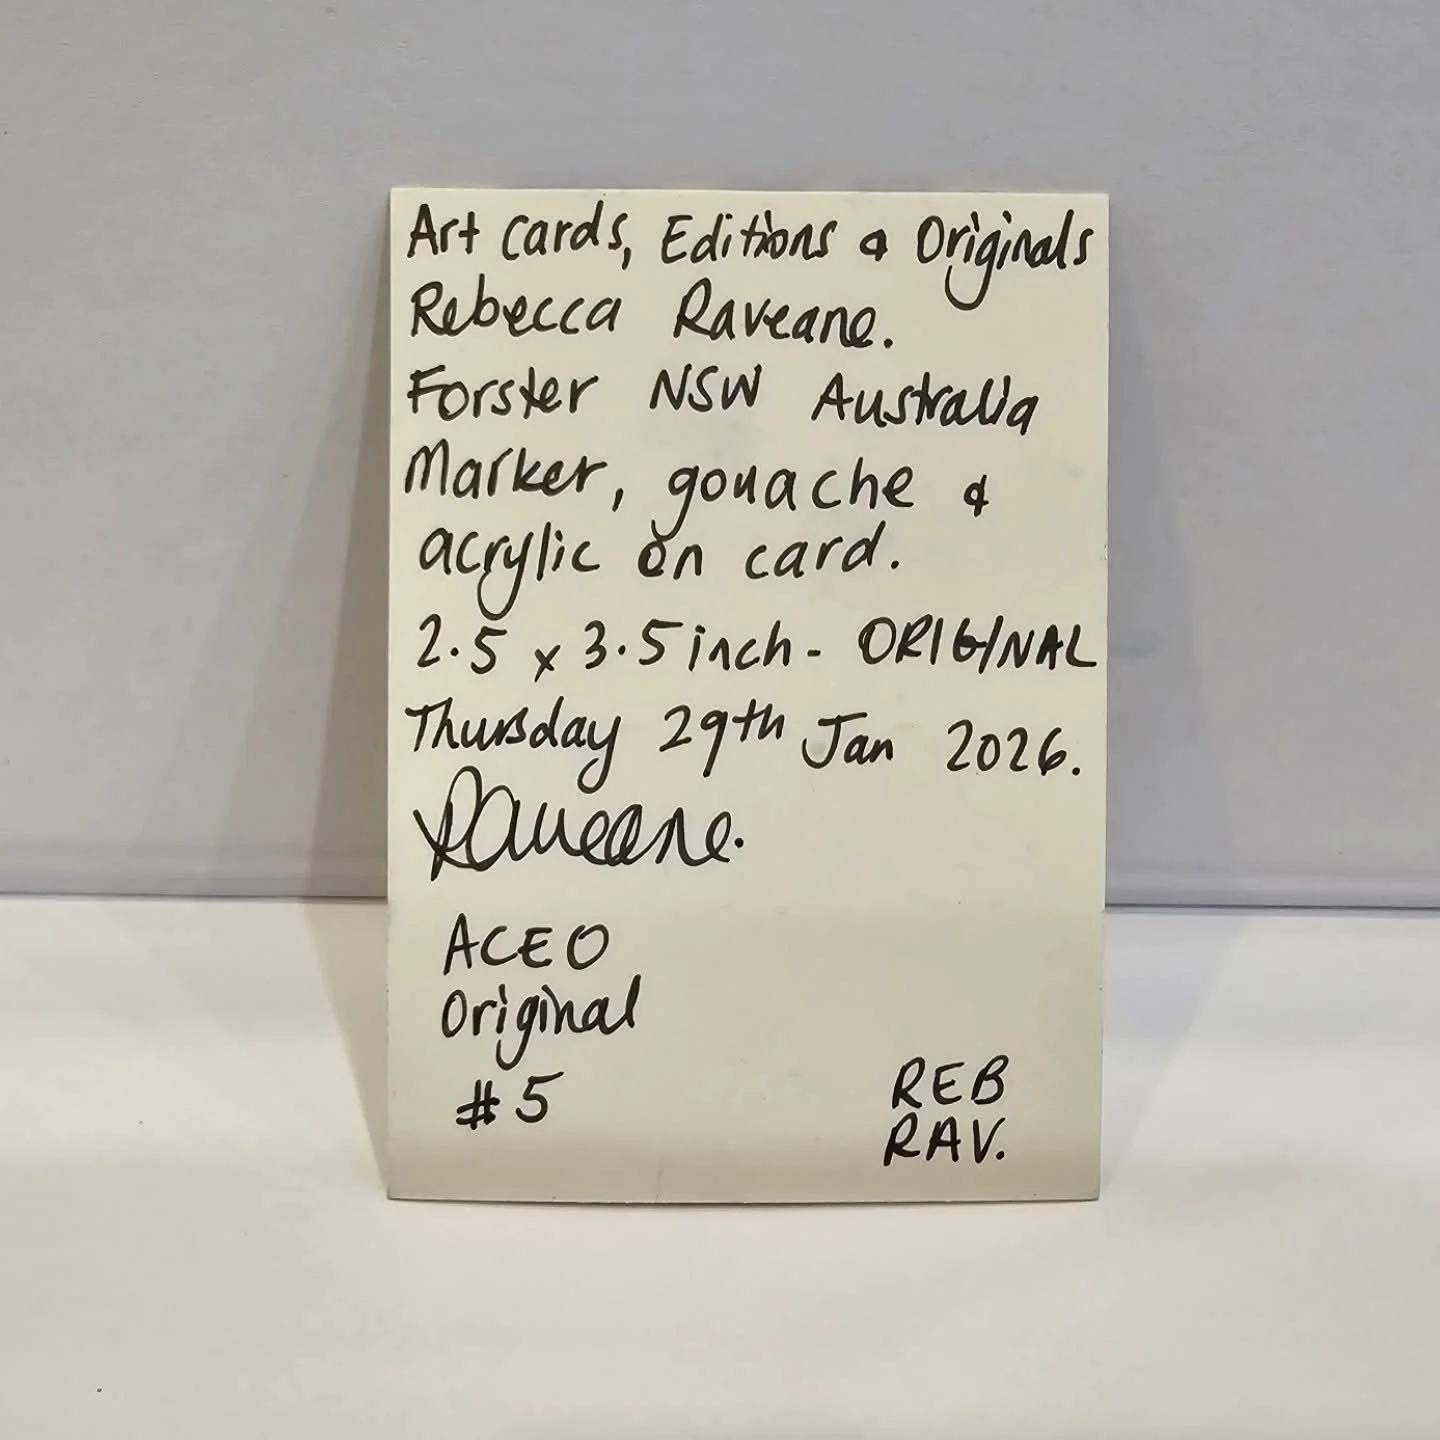 Art cards, Editions & Originals
Rebecca Raveane.
Forster NSW Australia
Marker, gouache &
acrylic on card.
2.5 x 3.5 inch - ORIGINAL
Thursday 29th Jan 2026.
Raveane.
ACEO
Original
#5
REB
RAV.